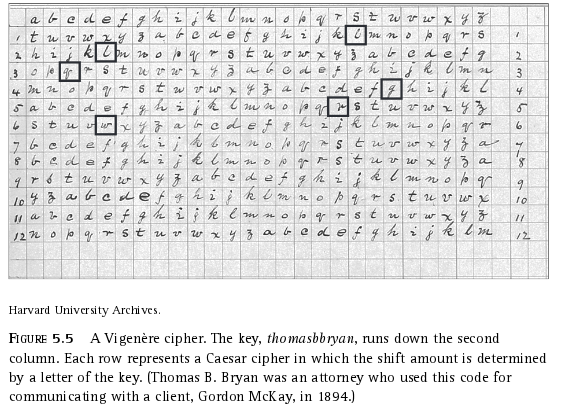 a b c d e f g h i j k l m n o p q r s t u v w x y z
1 t u v w x y z a b c d e f g h i j k l m n o p q r s 1
2 h i j k l m n o p q r s t u v w x y z a b c d e f g 2
3 o p q r s t u v w x y z a b c d e f g h i j k l m n 3
4 m n o p q r s t u v w x y z a b c d e f g h i j k l 4
5 a b c d e f g h i j k l m n o p q r s t u v w x y z 5
6 s t u v w x y z a b c d e f g h i j k l m n o p q r 6
7 b c d e f g h i j k l m n o p q r s t u v w x y z a 7
8 b c d e f g h i j k l m n o p q r s t u v w x y z a 8
9 r s t u v w x y z a b c d e f g h i j k l m n o p q 9
10 y z a b c d e f g h i j k l m n o p q r s t u v w x 10
11 a b c d e f g h i j k l m n o p q r s t u v w x y z 11
12 n o p q r s t u v w x y z a b c d e f g h i j k l m 12
Harvard University Archives.
FIGURE 5.5 A Vigenère cipher. The key, thomasbbryan, runs down the second
column. Each row represents a Caesar cipher in which the shift amount is determined
by a letter of the key. (Thomas B. Bryan was an attorney who used this code for
communicating with a client, Gordon McKay, in 1894.)